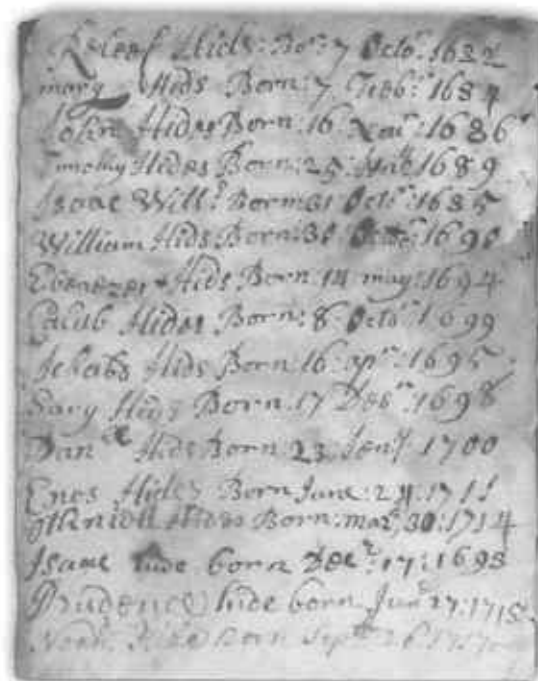 Hids: Bor: 7 Octor: 1682
mary Hids Born: 7 Febr: 1684
John Hides Born: 16 1686
Timothy Hides Born: 25: 1689
Isaac Will: Born: 31 Octor: 1685
William Hids Born: 31 1690
Ebenezer Hids Born: 14 may: 1694
Calub Hides Born: 8 Octor: 1699
Hids Born: 16: apr: 1695
Sary Hids Born: 17 Desr: 1698
Dan Hids Born: 23 Jeny 1700
Enos Hides Born June: 1711
Hides Born: mar, 30: 1714
Isaac hide born Decr: 17: 1693
Prudence hide born 27: 1715
Noah hide born Septr 26 1717